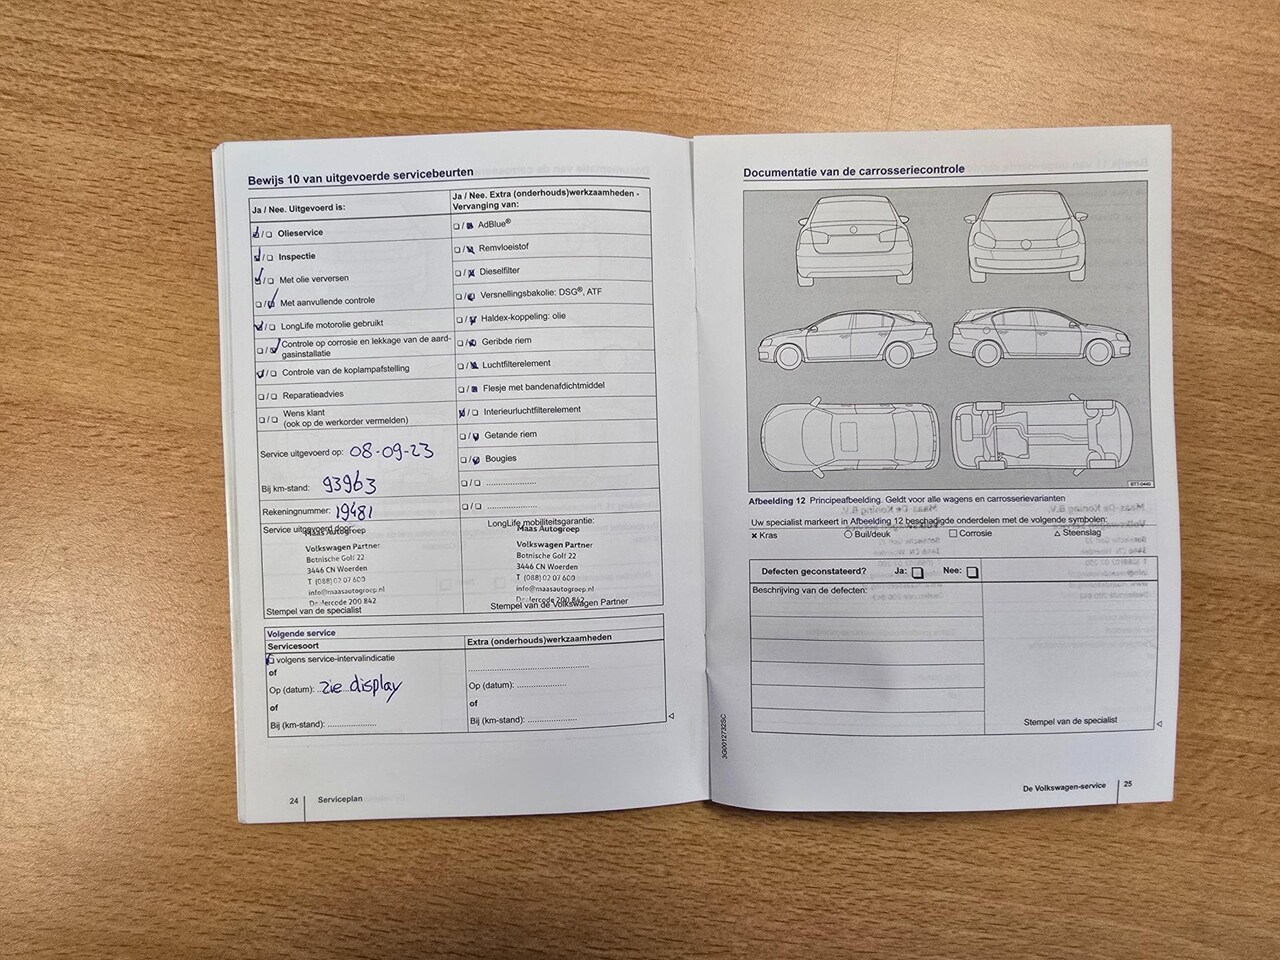 Bewijs 10 van uitgevoerde servicebeurten
Ja / Nee. Uitgevoerd is:
Olieservice
Inspectie
Met olie verversen
Met aanvullende controle
LongLife motorolie gebruikt
Controle op corrosie en lekkage van de aard-
gasinstallatie
Controle van de koplampafstelling
Reparatieadvies
Wens klant
(ook op de werkorder vermelden)
Service uitgevoerd op: 08-09-23
Bij km-stand: 93963
Rekeningnummer: 19481
Service uitgevoerd door:
Maas Autogroep
Volkswagen Partner
Botnische Golf 22
3446 CN Woerden
T (088) 02 07 600
info@maasautogroep.nl
Dealercode 200 842
Stempel van de specialist
Ja / Nee. Extra (onderhouds)werkzaamheden -
Vervanging van:
AdBlue®
Remvloeistof
Dieselfilter
Versnellingsbakolie: DSG®, ATF
Haldex-koppeling: olie
Geribde riem
Luchtfilterelement
Flesje met bandenafdichtmiddel
Interieurluchtfilterelement
Getande riem
Bougies
LongLife mobiliteitsgarantie:
Maas Autogroep
Volkswagen Partner
Botnische Golf 22
3446 CN Woerden
T (088) 02 07 600
info@maasautogroep.nl
Dealercode 200 842
Stempel van de Volkswagen Partner
Volgende service
Servicesoort
volgens service-intervalindicatie
of
Op (datum): zie display
of
Bij (km-stand): ....................
Extra (onderhouds)werkzaamheden
Op (datum): ....................
of
Bij (km-stand): ....................
24 Serviceplan
Documentatie van de carrosseriecontrole
BTT-0449
Afbeelding 12 Principeafbeelding. Geldt voor alle wagens en carrosserievarianten
Uw specialist markeert in Afbeelding 12 beschadigde onderdelen met de volgende symbolen:
Kras Buil/deuk Corrosie Steenslag
Defecten geconstateerd? Ja: Nee:
Beschrijving van de defecten:
Stempel van de specialist
3G0012732SC
De Volkswagen-service 25